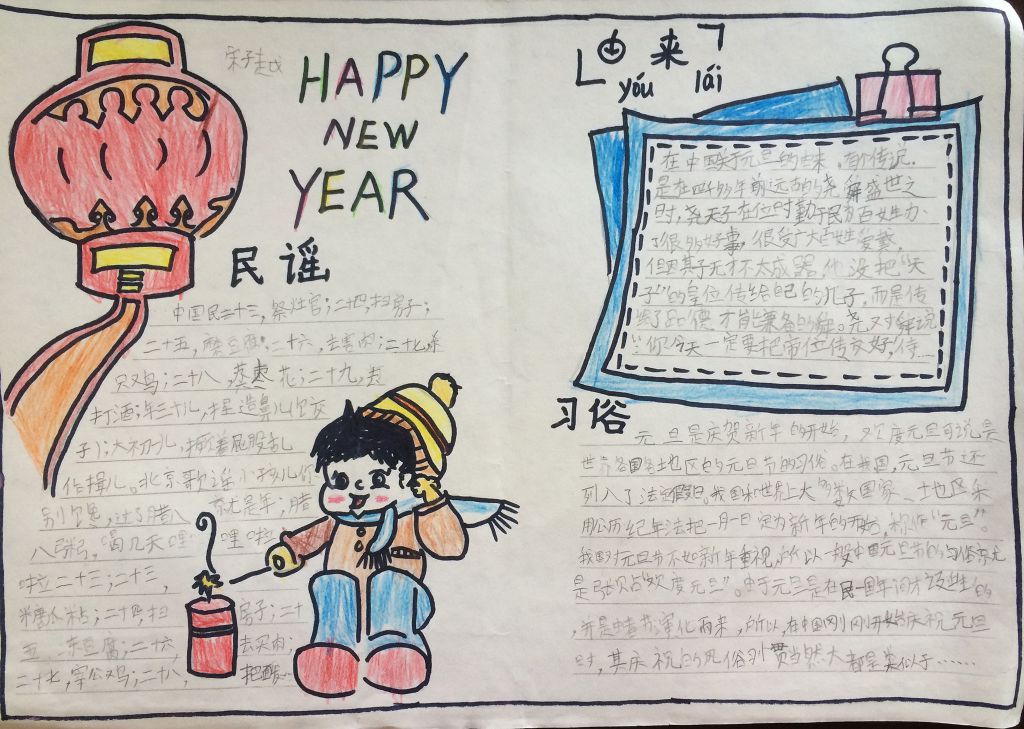 宋子越
HAPPY
NEW
YEAR
民谣
中国民二十三,祭灶官;二十四,扫房子;
二十五,磨豆腐;二十六,去割肉;二十七,杀
只鸡;二十八,蒸枣花;二十九,去
打酒;年三十儿,捏造鼻儿(饺
子);大初一儿,撅着屁股乱
作揖儿。北京歌谣 小孩儿你
别馋,过了腊八就是年;腊
八粥,喝几天,哩哩啦
啦二十三;二十三,
糖瓜粘;二十四,扫房子;二十
五 冻豆腐;二十六,去买肉;
二十七,宰公鸡;二十八,把面
由来
yóu lái
在中国关于元旦的由来,有个传说,
是在四千多年前远古的尧舜盛世之
时,尧天子在位时勤于民为百姓办
了很多好事,很受广大百姓爱戴,
但因其子无才不太成器,他没把“天
子”的皇位传给自己的儿子,而是传
给了品德才能兼备的舜。尧对舜说
“你今天一定要把帝位传交好,待
习俗
元旦是庆贺新年的开始,欢度元旦可说是
世界各国各地区的元旦节的习俗。在我国,元旦节还
列入了法定假日。我国和世界上大多数国家、土地区采
用公历纪年法把一月一日定为新年的开始,称作“元旦”。
我国对元旦节不如新年重视,所以一般中国元旦节的
是张贴“欢度元旦”。由于元旦是在民国年间才诞生的
所以,在中国刚刚开始庆祝元旦
时,其庆祝的风俗习惯当然大都是类似于……